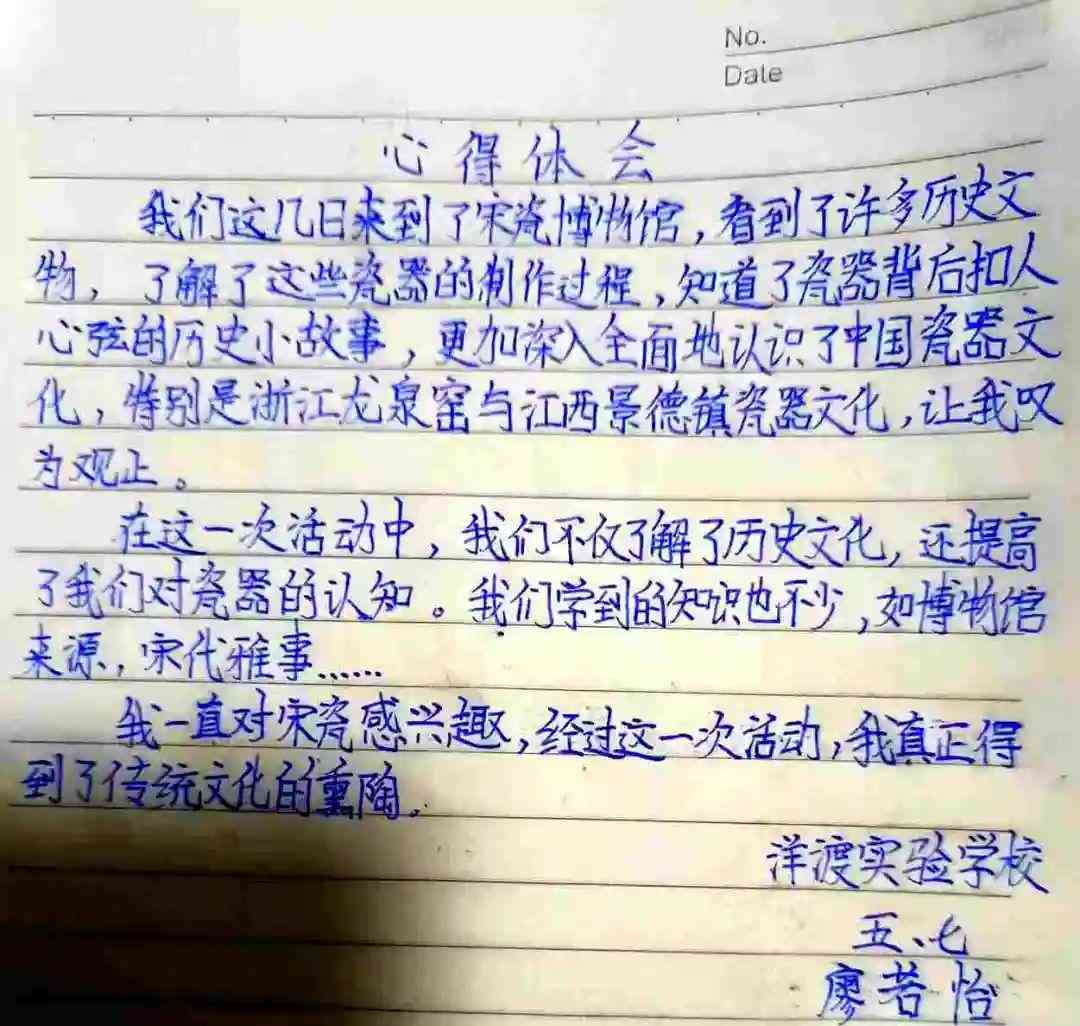 No.
Date
心得体会
我们这几日来到了宋瓷博物馆，看到了许多历史文
物，了解了这些瓷器的制作过程，知道了瓷器背后扣人
心弦的历史小故事，更加深入全面地认识了中国瓷器文
化，特别是浙江龙泉窑与江西景德镇瓷器文化，让我叹
为观止。
在这一次活动中，我们不仅了解了历史文化，还提高
了我们对瓷器的认知。我们学到的知识也不少，如博物馆
来源，宋代雅事……
我一直对宋瓷感兴趣，经过这一次活动，我真正得
到了传统文化的熏陶。
洋渡实验学校
五、七
廖若怡